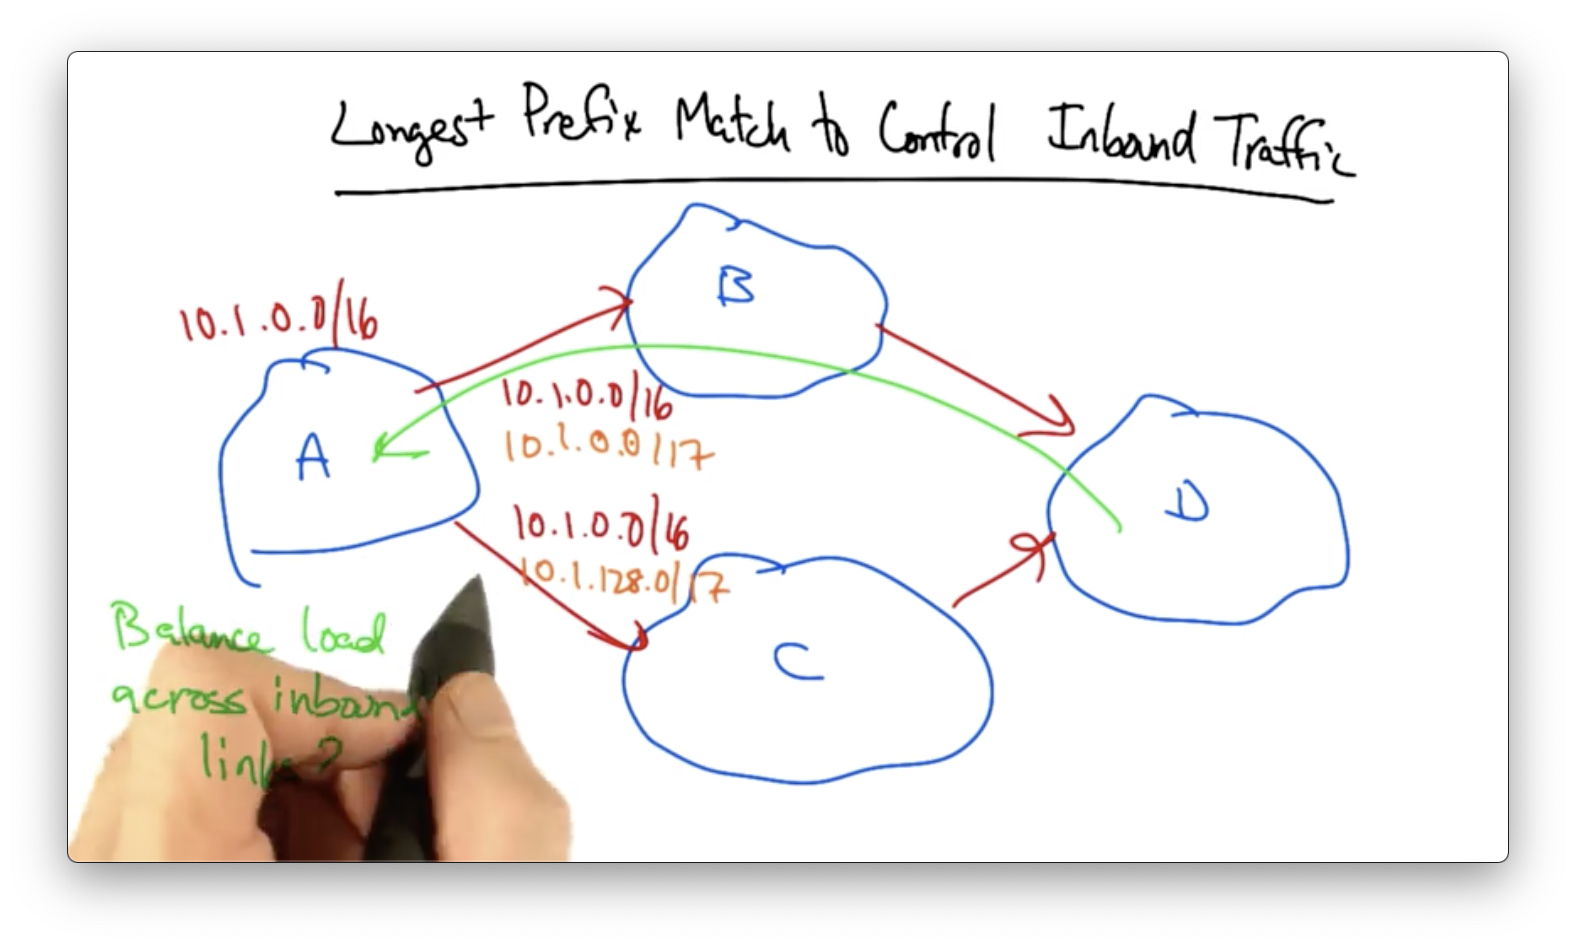 Longest Prefix Match to Control Inbound Traffic
B
10.1.0.0/16
10.1.0.0/16
10.1.0.0/17
A
D
10.1.0.0/16
10.1.128.0/17
C
Balance load
across inbound
links?